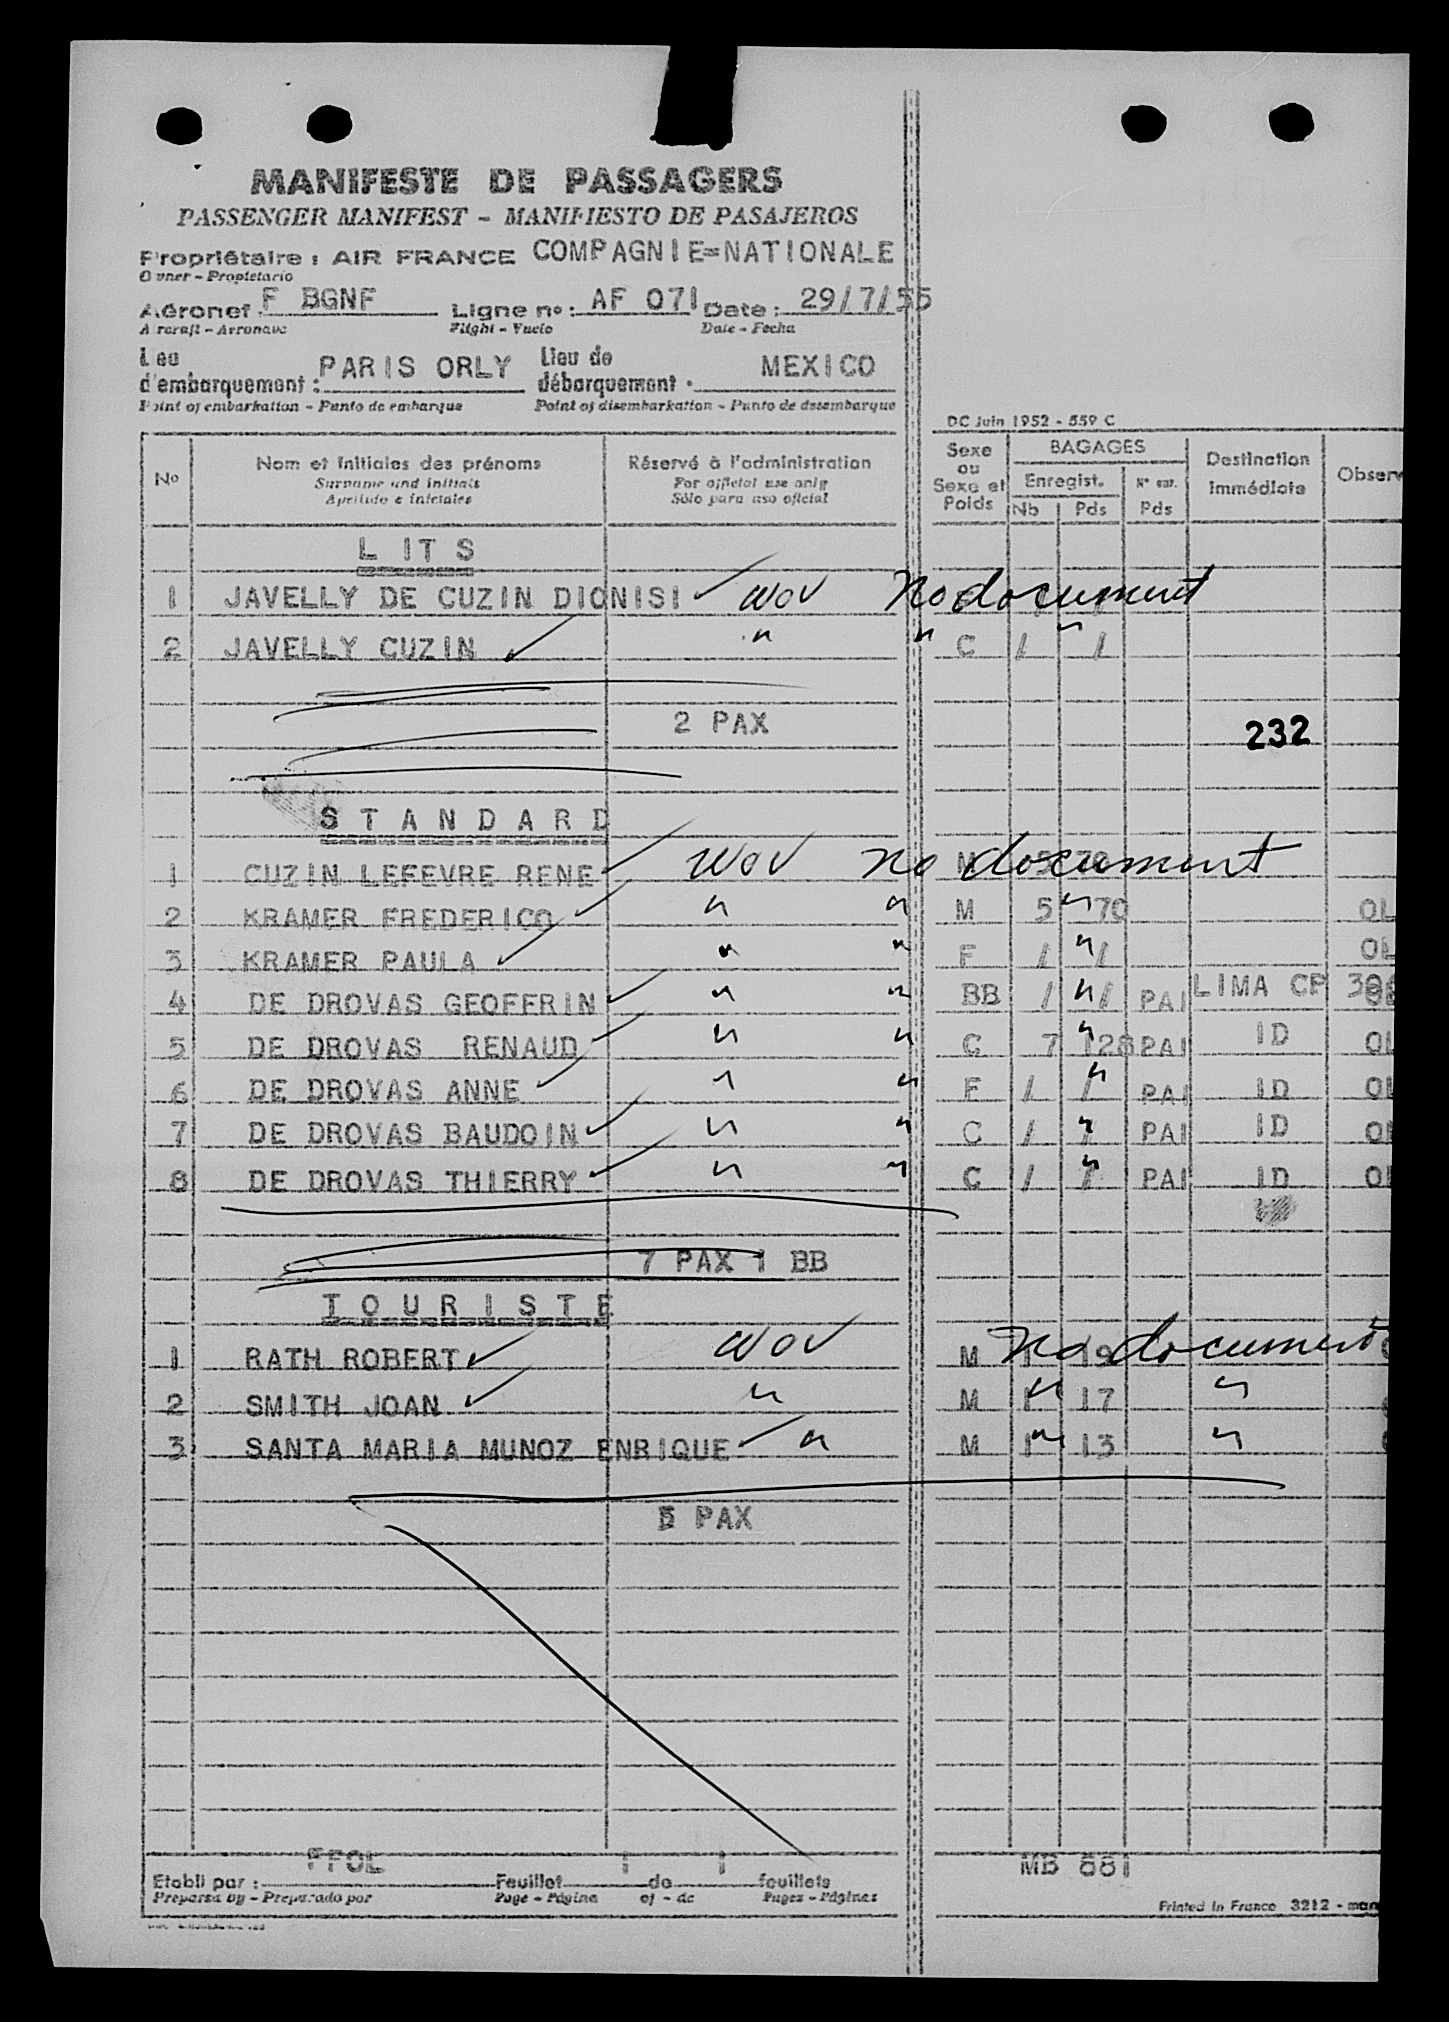 MANIFESTE DE PASSAGERS
PASSENGER MANIFEST - MANIFIESTO DE PASAJEROS
Propriétaire : AIR FRANCE COMPAGNIE=NATIONALE
Owner - Propietario
Aéronef F BGNF Ligne no : AF 071 Date : 29/7/55
Aircraft - Aeronave Flight - Vuelo Date - Fecha
Lieu d'embarquement : PARIS ORLY Lieu de débarquement MEXICO
Point of embarkation - Punto de embarque Point of disembarkation - Punto de desembarque
DC Juin 1952 - 559 C
No Nom et initiales des prénoms Réservé à l'administration Sexe ou Sexe et Poids BAGAGES Destination immédiate Observ
Surname and initials For official use only Enregist. Nº enr.
Apellido e iniciales Sólo para uso oficial Nb Pds Pds
L ITS
1 JAVELLY DE CUZIN DIONISI WOV No document
2 JAVELLY CUZIN " " C / " /
2 PAX
232
S T A N D A R D
1 CUZIN LEFEVRE RENE WOV no document M
2 KRAMER FREDERICO " " M 5 " 70 OL
3 KRAMER PAULA " " F / " / OL
4 DE DROVAS GEOFFRIN " " BB / " / PAI LIMA CP
5 DE DROVAS RENAUD " " C 7 " 128 PAI ID OL
6 DE DROVAS ANNE " " F / " / PAI ID OL
7 DE DROVAS BAUDOIN " " C / " / PAI ID OL
8 DE DROVAS THIERRY " " C / " / PAI ID OL
7 PAX 1 BB
T O U R I S T E
1 RATH ROBERT WOV M 1 19 no document
2 SMITH JOAN " M 1 " 17 "
3 SANTA MARIA MUNOZ ENRIQUE " M 1 " 13 "
PAX
Etabli par : FFOL Feuillet 1 de 1 feuillets MB 881
Prepared by - Preparado por Page - Página of - de Pages - Páginas
Printed in France 3212 - man